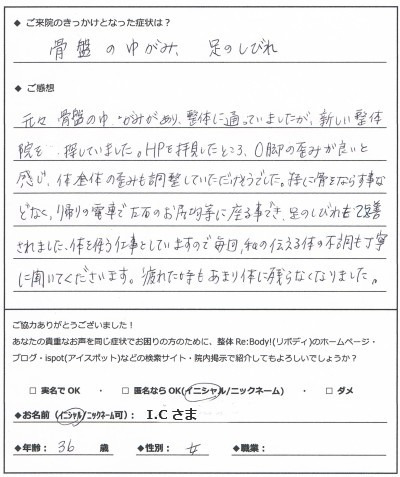 ◆ ご来院のきっかけとなった症状は?
骨盤のゆがみ、足のしびれ
◆ ご感想
元々骨盤のゆがみがあり、整体に通っていましたが、新しい整体
院を探していました。HPを拝見したところ、O脚の歪みが良いと
感じ、体全体の歪みも調整していただけそうでした。特に骨をならす事な
どなく、帰りの電車で左右のお尻均等に座る事でき、足のしびれも改善
されました。体を使う仕事としていますので毎回、私の伝える体の不調も丁寧
に聞いてくださいます。疲れた時もあまり体に残らなくなりました。
ご協力ありがとうございました!
あなたの貴重なお声を同じ症状でお困りの方のために、整体 Re:Body!(リボディ)のホームページ・
ブログ・ispot(アイスポット)などの検索サイト・院内掲示で紹介してもよろしいでしょうか?
□ 実名でOK ・ □ 匿名ならOK(イニシャル/ニックネーム) ・ □ ダメ
◆お名前(イニシャル/ニックネーム可): I.Cさま
◆年齢: 36 歳 ◆性別: 女 ◆職業: